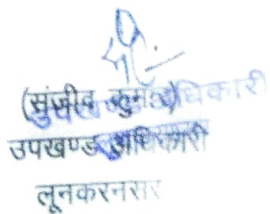 (संजीव कुमार)
उपखण्ड अधिकारी
लूनकरनसर